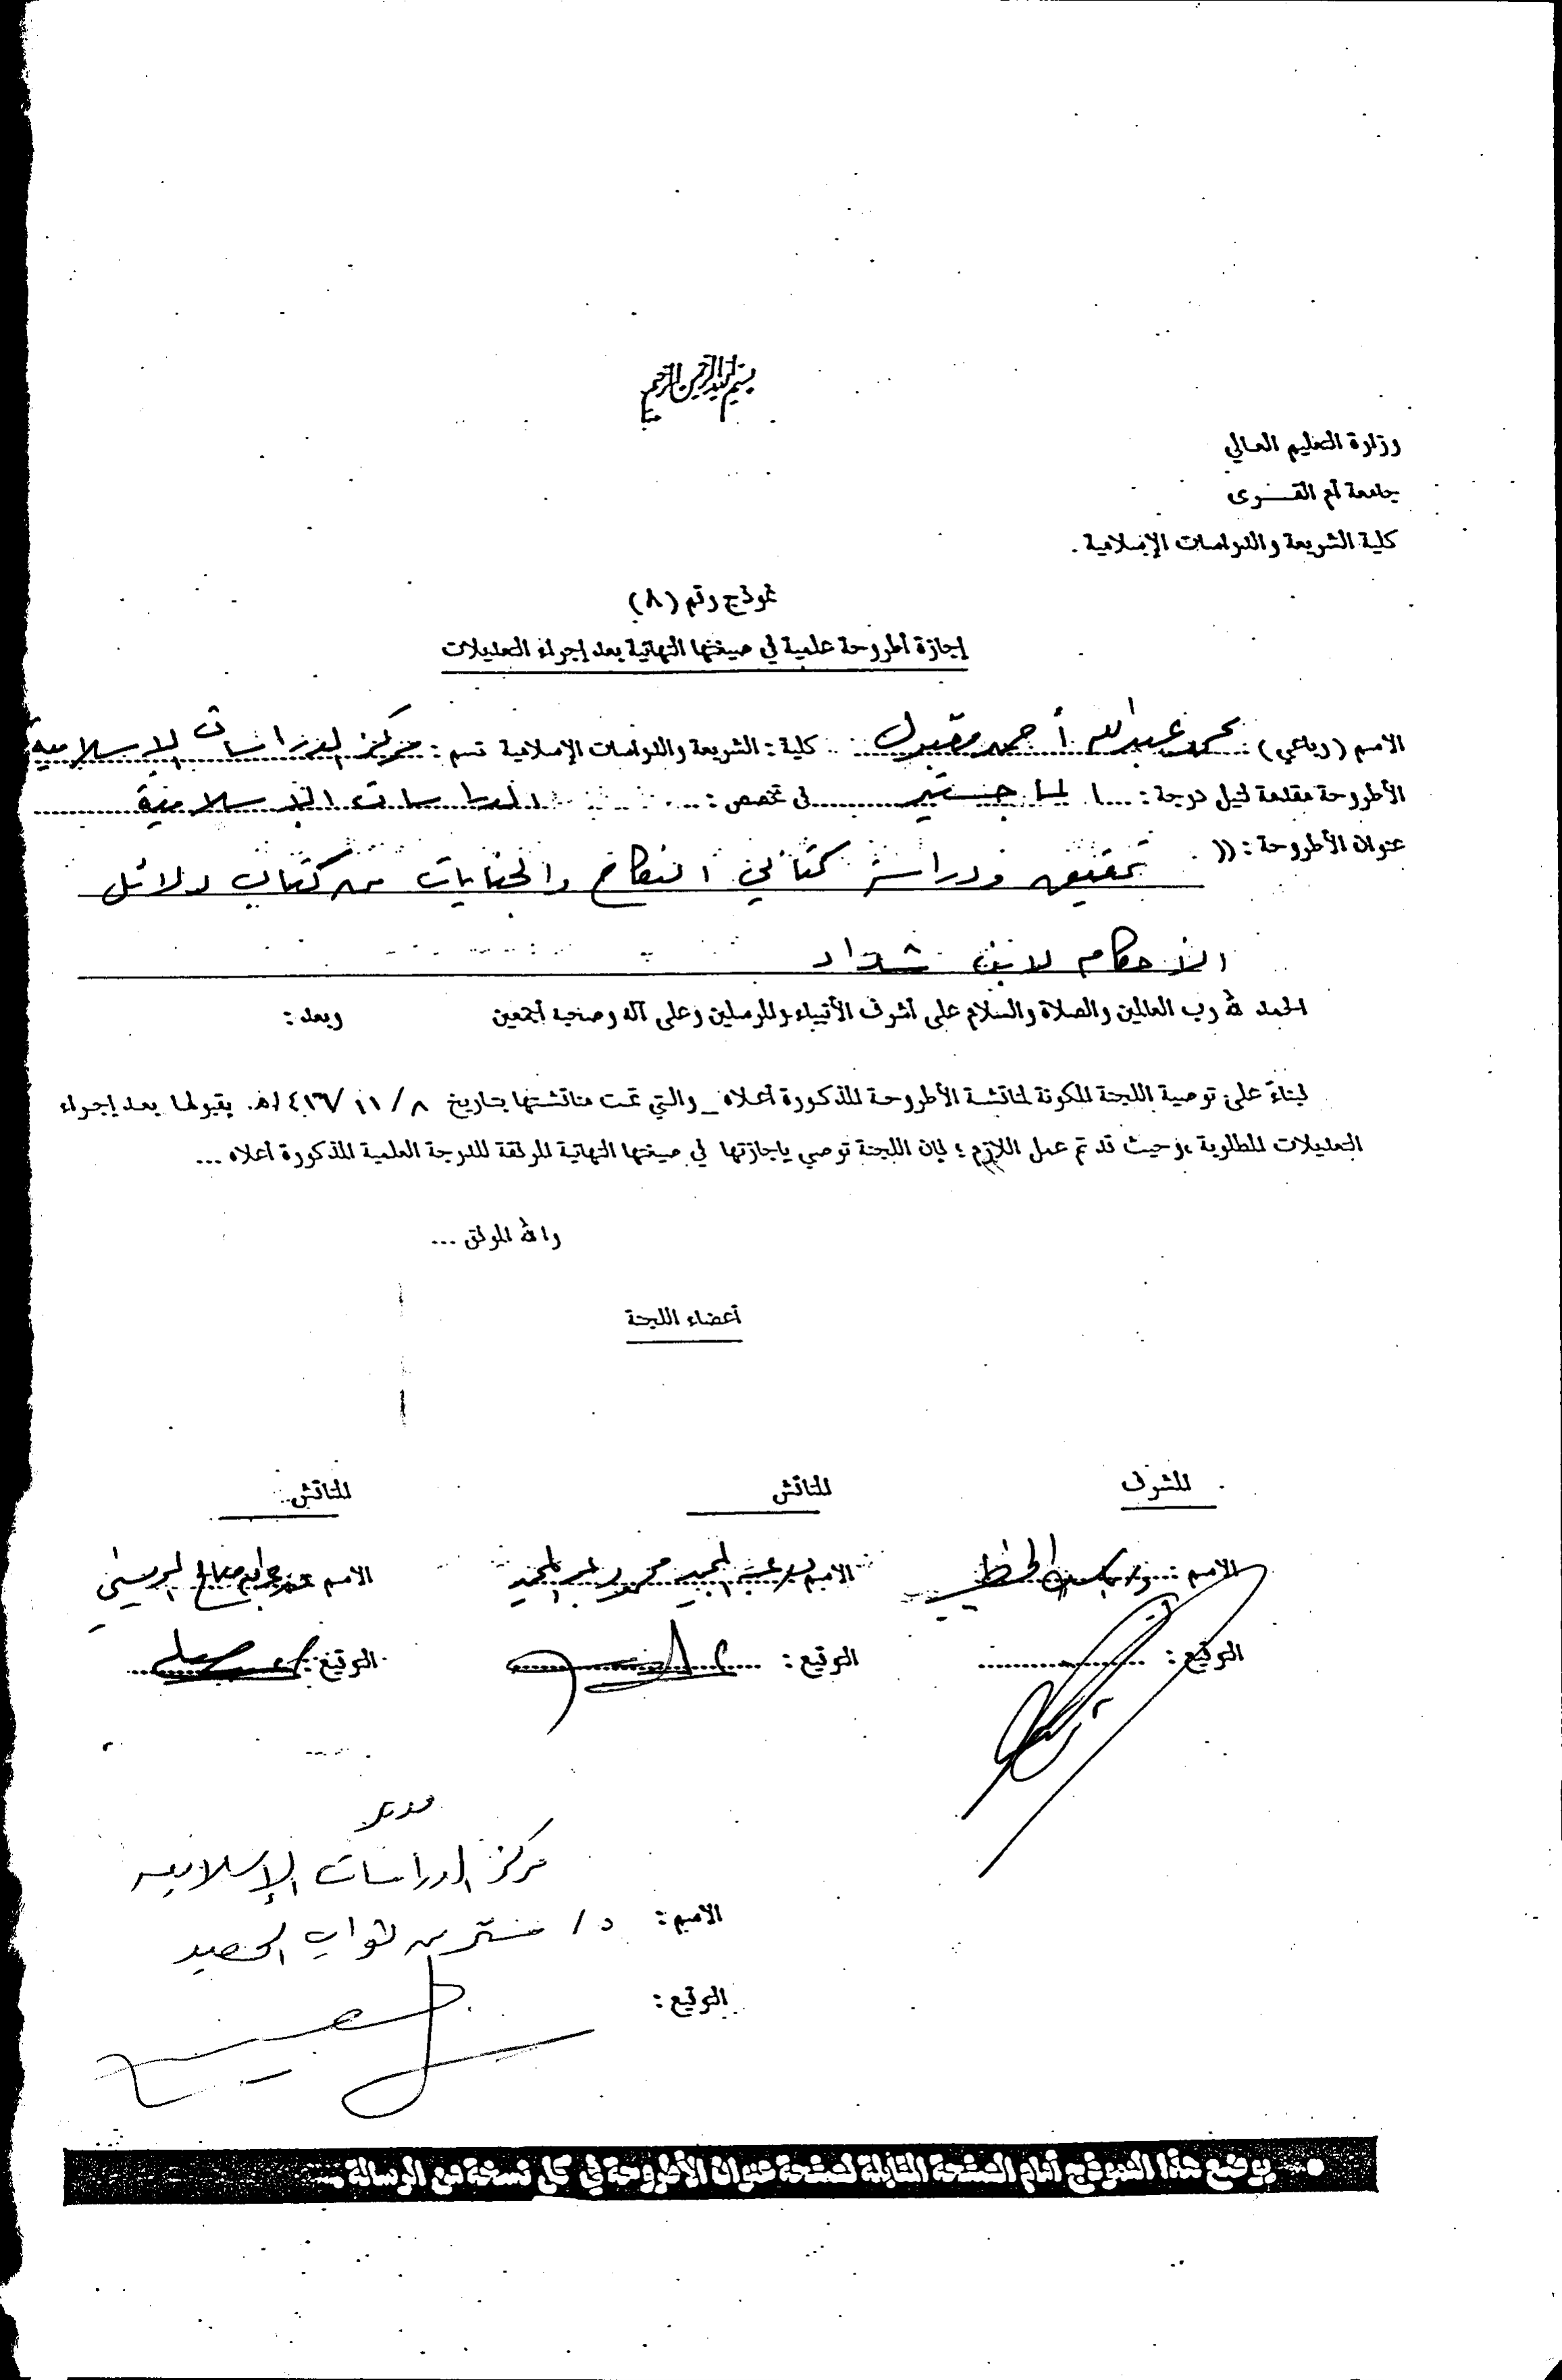 بسم الله الرحمن الرحيم
وزارة التعليم العالي
جامعة أم القــرى
كلية الشريعة والدراسات الإسلامية .
نموذج رقم (٨)
إجازة أطروحة علمية في صيغتها النهائية بعد إجراء التعديلات
الاسم (رباعي) : محمد عبدالله أحمد مقبول كلية : الشريعة والدراسات الإسلامية قسم : مركز الدراسات الإسلامية
الأطروحة مقدمة لنيل درجة : الماجستير في تخصص : الدراسات الإسلامية
عنوان الأطروحة : (( تحقيق ودراسة كتابي النكاح والجنايات من كتاب دلائل
الأحكام لابن شداد
الحمد لله رب العالمين والصلاة والسلام على أشرف الأنبياء والمرسلين وعلى آله وصحبه أجمعين وبعد :
فبناءً على توصية اللجنة المكونة لمناقشة الأطروحة المذكورة أعلاه _ والتي تمت مناقشتها بتاريخ ٨ / ١١ / ١٤١٦هـ بقبولها بعد إجراء
التعديلات المطلوبة ، وحيث قد تم عمل اللازم ؛ فإن اللجنة توصي بإجازتها في صيغتها النهائية المرفقة للدرجة العلمية المذكورة أعلاه ...
والله الموفق ...
أعضاء اللجنة
المشرف المناقش المناقش
الاسم : د/ ياسين الخطيب الاسم د/ عبد المجيد محمود عبد المجيد الاسم
التوقيع : التوقيع : التوقيع :
مدير
مركز الدراسات الإسلامية
الاسم : د /
التوقيع :
• يوضع هذا النموذج أمام الصفحة المقابلة لصفحة عنوان الأطروحة في كل نسخة من الرسالة